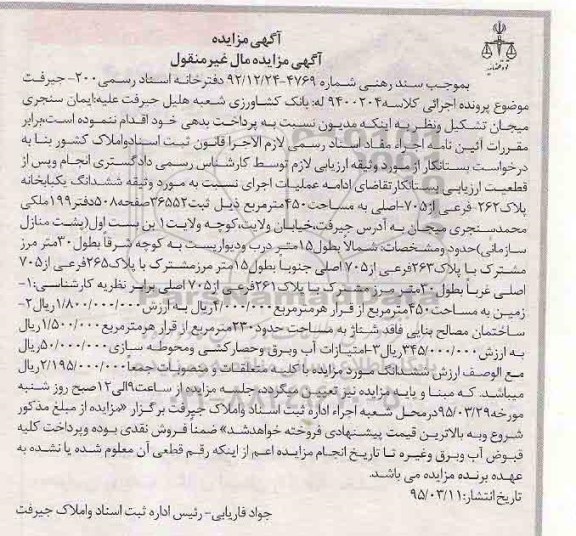 آگهی مزایده
آگهی مزایده مال غیر منقول
بموجب سند رهنی شماره ۴۷۶۹-۹۲/۱۲/۲۴ دفترخانه اسناد رسمی ۲۰۰- جیرفت
موضوع پرونده اجرائی کلاسه ۹۴۰۰۲۰۴ له: بانک کشاورزی شعبه هلیل جیرفت علیه: ایمان سنجری
میجان تشکیل ونظر به اینکه مدیون نسبت به پرداخت بدهی خود اقدام ننموده است، برابر
مقررات آئین نامه اجراء مفاد اسناد رسمی لازم الاجرا قانون ثبت اسناد واملاک کشور بنا به
درخواست بستانکار از مورد وثیقه ارزیابی لازم توسط کارشناس رسمی دادگستری انجام وپس از
قطعیت ارزیابی بستانکار تقاضای ادامه عملیات اجرای نسبت به مورد وثیقه ششدانگ یکبابخانه
پلاک ۲۶۲- فرعی از ۷۰۵-اصلی به مساحت ۴۵۰ مترمربع ذیل ثبت ۳۶۵۵۲ صفحه ۵۰۸ دفتر ۱۹۹ ملکی
محمد سنجری میجان به آدرس جیرفت، خیابان ولایت، کوچه ولایت ۱ بن بست اول (پشت منازل
سازمانی) حدود ومشخصات: شمالا بطول ۱۵ متر درب ودیواریست به کوچه شرقاً بطول ۳۰ متر مرز
مشترک با پلاک ۲۶۳ فرعی از ۷۰۵ اصلی جنوباً بطول ۱۵ متر مرزمشترک با پلاک ۲۶۵ فرعی از ۷۰۵
اصلی غرباً بطول ۳۰ متر مرز مشترک با پلاک ۲۶۱ فرعی از ۷۰۵ اصلی برابر نظریه کارشناسی: ۱-
زمین به مساحت ۴۵۰ مترمربع از قرار هرمترمربع ۴/۰۰۰/۰۰۰ ریال به ارزش ۱/۸۰۰/۰۰۰/۰۰۰ ریال ۲-
ساختمان مصالح بنایی فاقد شناژ به مساحت حدود ۲۳۰ مترمربع از قرار هرمترمربع ۱/۵۰۰/۰۰۰ ریال
به ارزش ۳۴۵/۰۰۰/۰۰۰ ریال ۳-امتیازات آب وبرق وحصارکشی ومحوطه سازی ۵۰/۰۰۰/۰۰۰ ریال
مع الوصف ارزش ششدانگ مورد مزایده با کلیه متعلقات و خصوصیات جمعاً ۲/۱۹۵/۰۰۰/۰۰۰ ریال
میباشد. که مبنا و پایه مزایده نیز تعیین میگردد. جلسه مزایده از ساعت ۹ الی ۱۲ صبح روز شنبه
مورخه ۹۵/۰۳/۲۹ درمحل شعبه اجراء اداره ثبت اسناد واملاک جیرفت برگزار «مزایده از مبلغ مذکور
شروع وبه بالاترین قیمت پیشنهادی فروخته خواهدشد» ضمناً فروش نقدی بوده وپرداخت کلیه
قبوض آب وبرق وغیره تا تاریخ انجام مزایده اعم از اینکه رقم قطعی آن معلوم شده یا نشده به
عهده برنده مزایده می باشد.
تاریخ انتشار: ۹۵/۰۳/۱۱
جواد فاریابی- رئیس اداره ثبت اسناد واملاک جیرفت